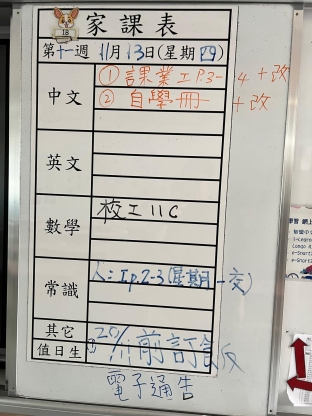 18
家課表
第十一週 11月13日(星期四)
中文
① 課業工P3-4+改
② 自學冊 +改
英文
數學
校工11C
常識
人:工p.2-3(星期一交)
其它
20/11前訂飯
值日生
電子通告